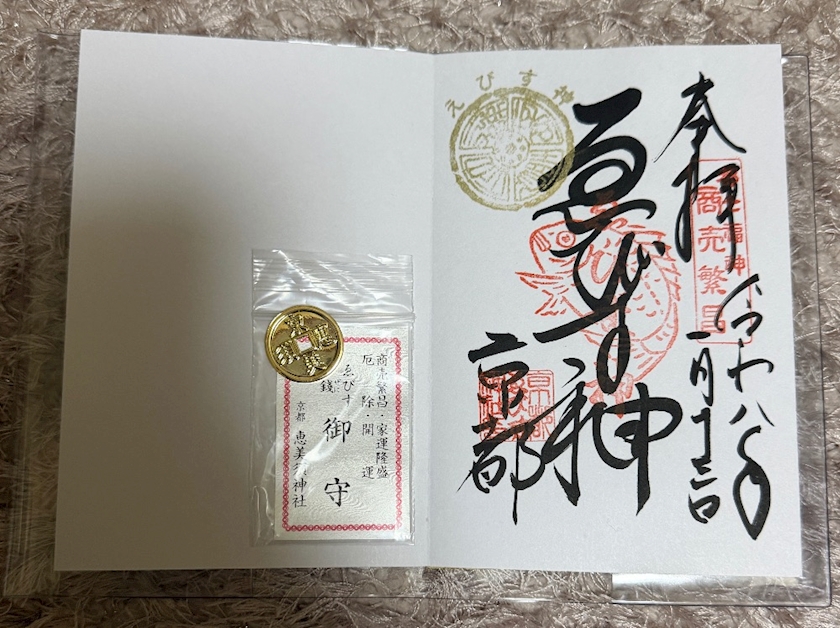 奉拝
令和八年
一月十
七福神
商売繁昌
えびす神
恵びす神
京都
商売繁昌・家運隆盛
厄除・開運
ゑびす
銭 御守
京都 恵美須神社